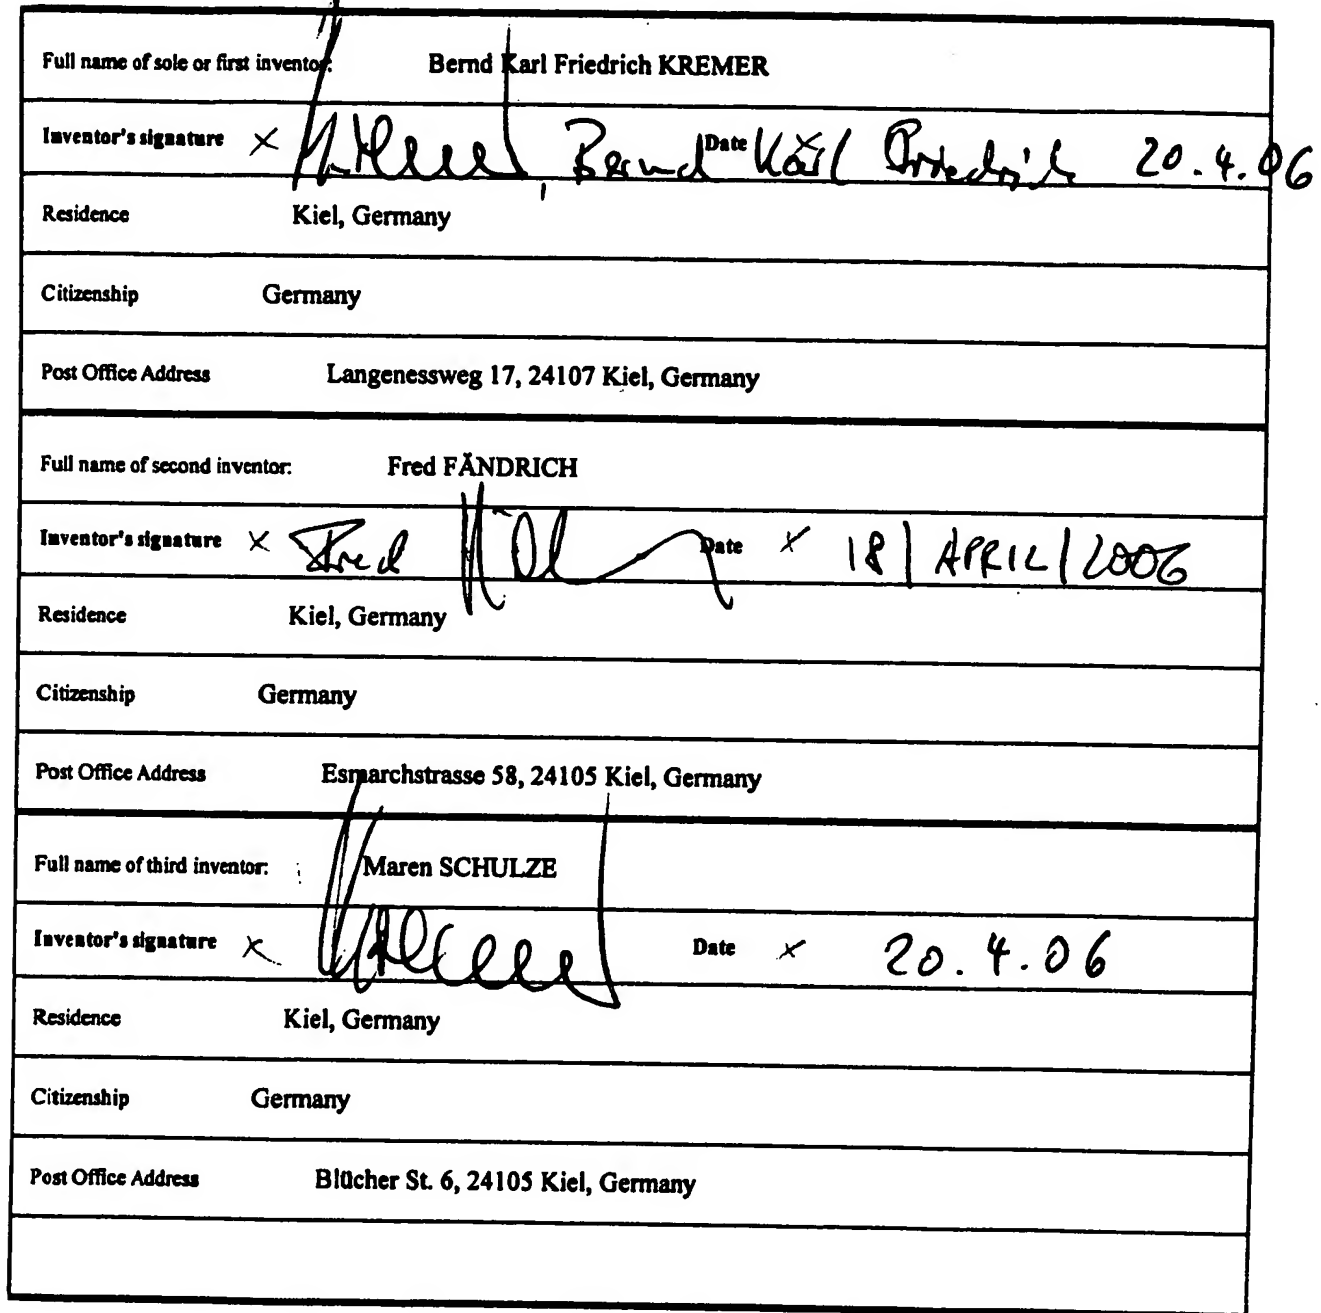 Full name of sole or first inventor: Bernd Karl Friedrich KREMER
Inventor's signature X , Bernd Karl Friedrich Date X 20.4.06
Residence Kiel, Germany
Citizenship Germany
Post Office Address Langenessweg 17, 24107 Kiel, Germany
Full name of second inventor: Fred FÄNDRICH
Inventor's signature X Fred Date X 18/APRIL/2006
Residence Kiel, Germany
Citizenship Germany
Post Office Address Esmarchstrasse 58, 24105 Kiel, Germany
Full name of third inventor: Maren SCHULZE
Inventor's signature X Date X 20.4.06
Residence Kiel, Germany
Citizenship Germany
Post Office Address Blücher St. 6, 24105 Kiel, Germany